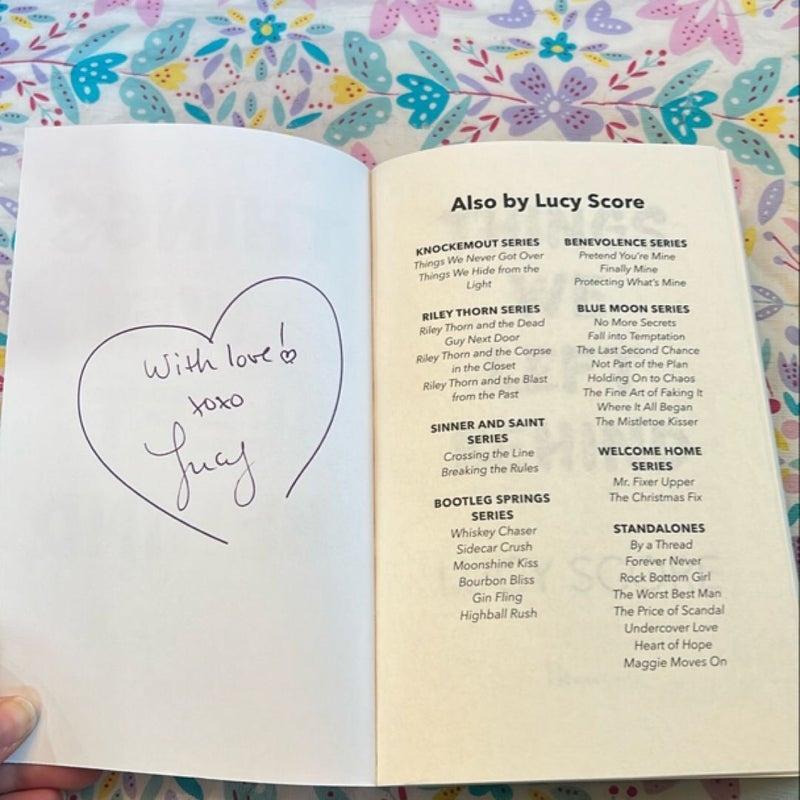 With love!
xoxo
Lucy
Also by Lucy Score
KNOCKEMOUT SERIES
Things We Never Got Over
Things We Hide from the
Light
RILEY THORN SERIES
Riley Thorn and the Dead
Guy Next Door
Riley Thorn and the Corpse
in the Closet
Riley Thorn and the Blast
from the Past
SINNER AND SAINT
SERIES
Crossing the Line
Breaking the Rules
BOOTLEG SPRINGS
SERIES
Whiskey Chaser
Sidecar Crush
Moonshine Kiss
Bourbon Bliss
Gin Fling
Highball Rush
BENEVOLENCE SERIES
Pretend You're Mine
Finally Mine
Protecting What's Mine
BLUE MOON SERIES
No More Secrets
Fall into Temptation
The Last Second Chance
Not Part of the Plan
Holding On to Chaos
The Fine Art of Faking It
Where It All Began
The Mistletoe Kisser
WELCOME HOME
SERIES
Mr. Fixer Upper
The Christmas Fix
STANDALONES
By a Thread
Forever Never
Rock Bottom Girl
The Worst Best Man
The Price of Scandal
Undercover Love
Heart of Hope
Maggie Moves On